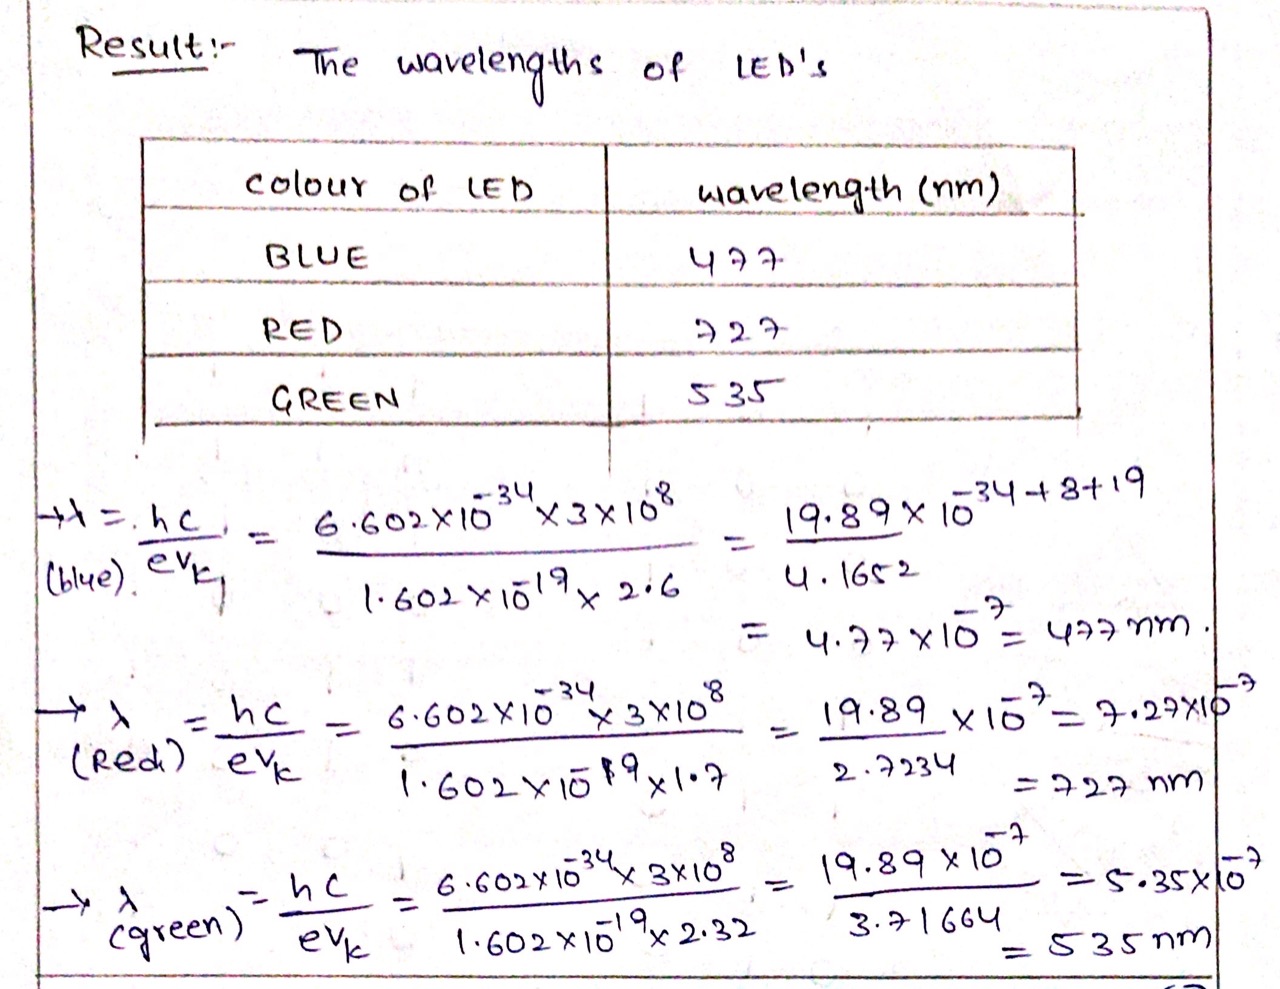 Result:-
The wavelengths of LED's
colour of LED wavelength (nm)
BLUE 477
RED 727
GREEN 535
→ λ = hc / eVk1 = 6.602×10^-34 × 3×10^8 / 1.602×10^-19 × 2.6 = 19.89×10^-34+8+19 / 4.1652
(blue)
= 4.77×10^-7 = 477 nm.
→ λ = hc / eVk = 6.602×10^-34 × 3×10^8 / 1.602×10^-19 × 1.7 = 19.89 / 2.7234 ×10^-7 = 7.27×10^-7
(Red)
= 727 nm
→ λ = hc / eVk = 6.602×10^-34 × 3×10^8 / 1.602×10^-19 × 2.32 = 19.89×10^-7 / 3.71664 = 5.35×10^-7
(green)
= 535 nm